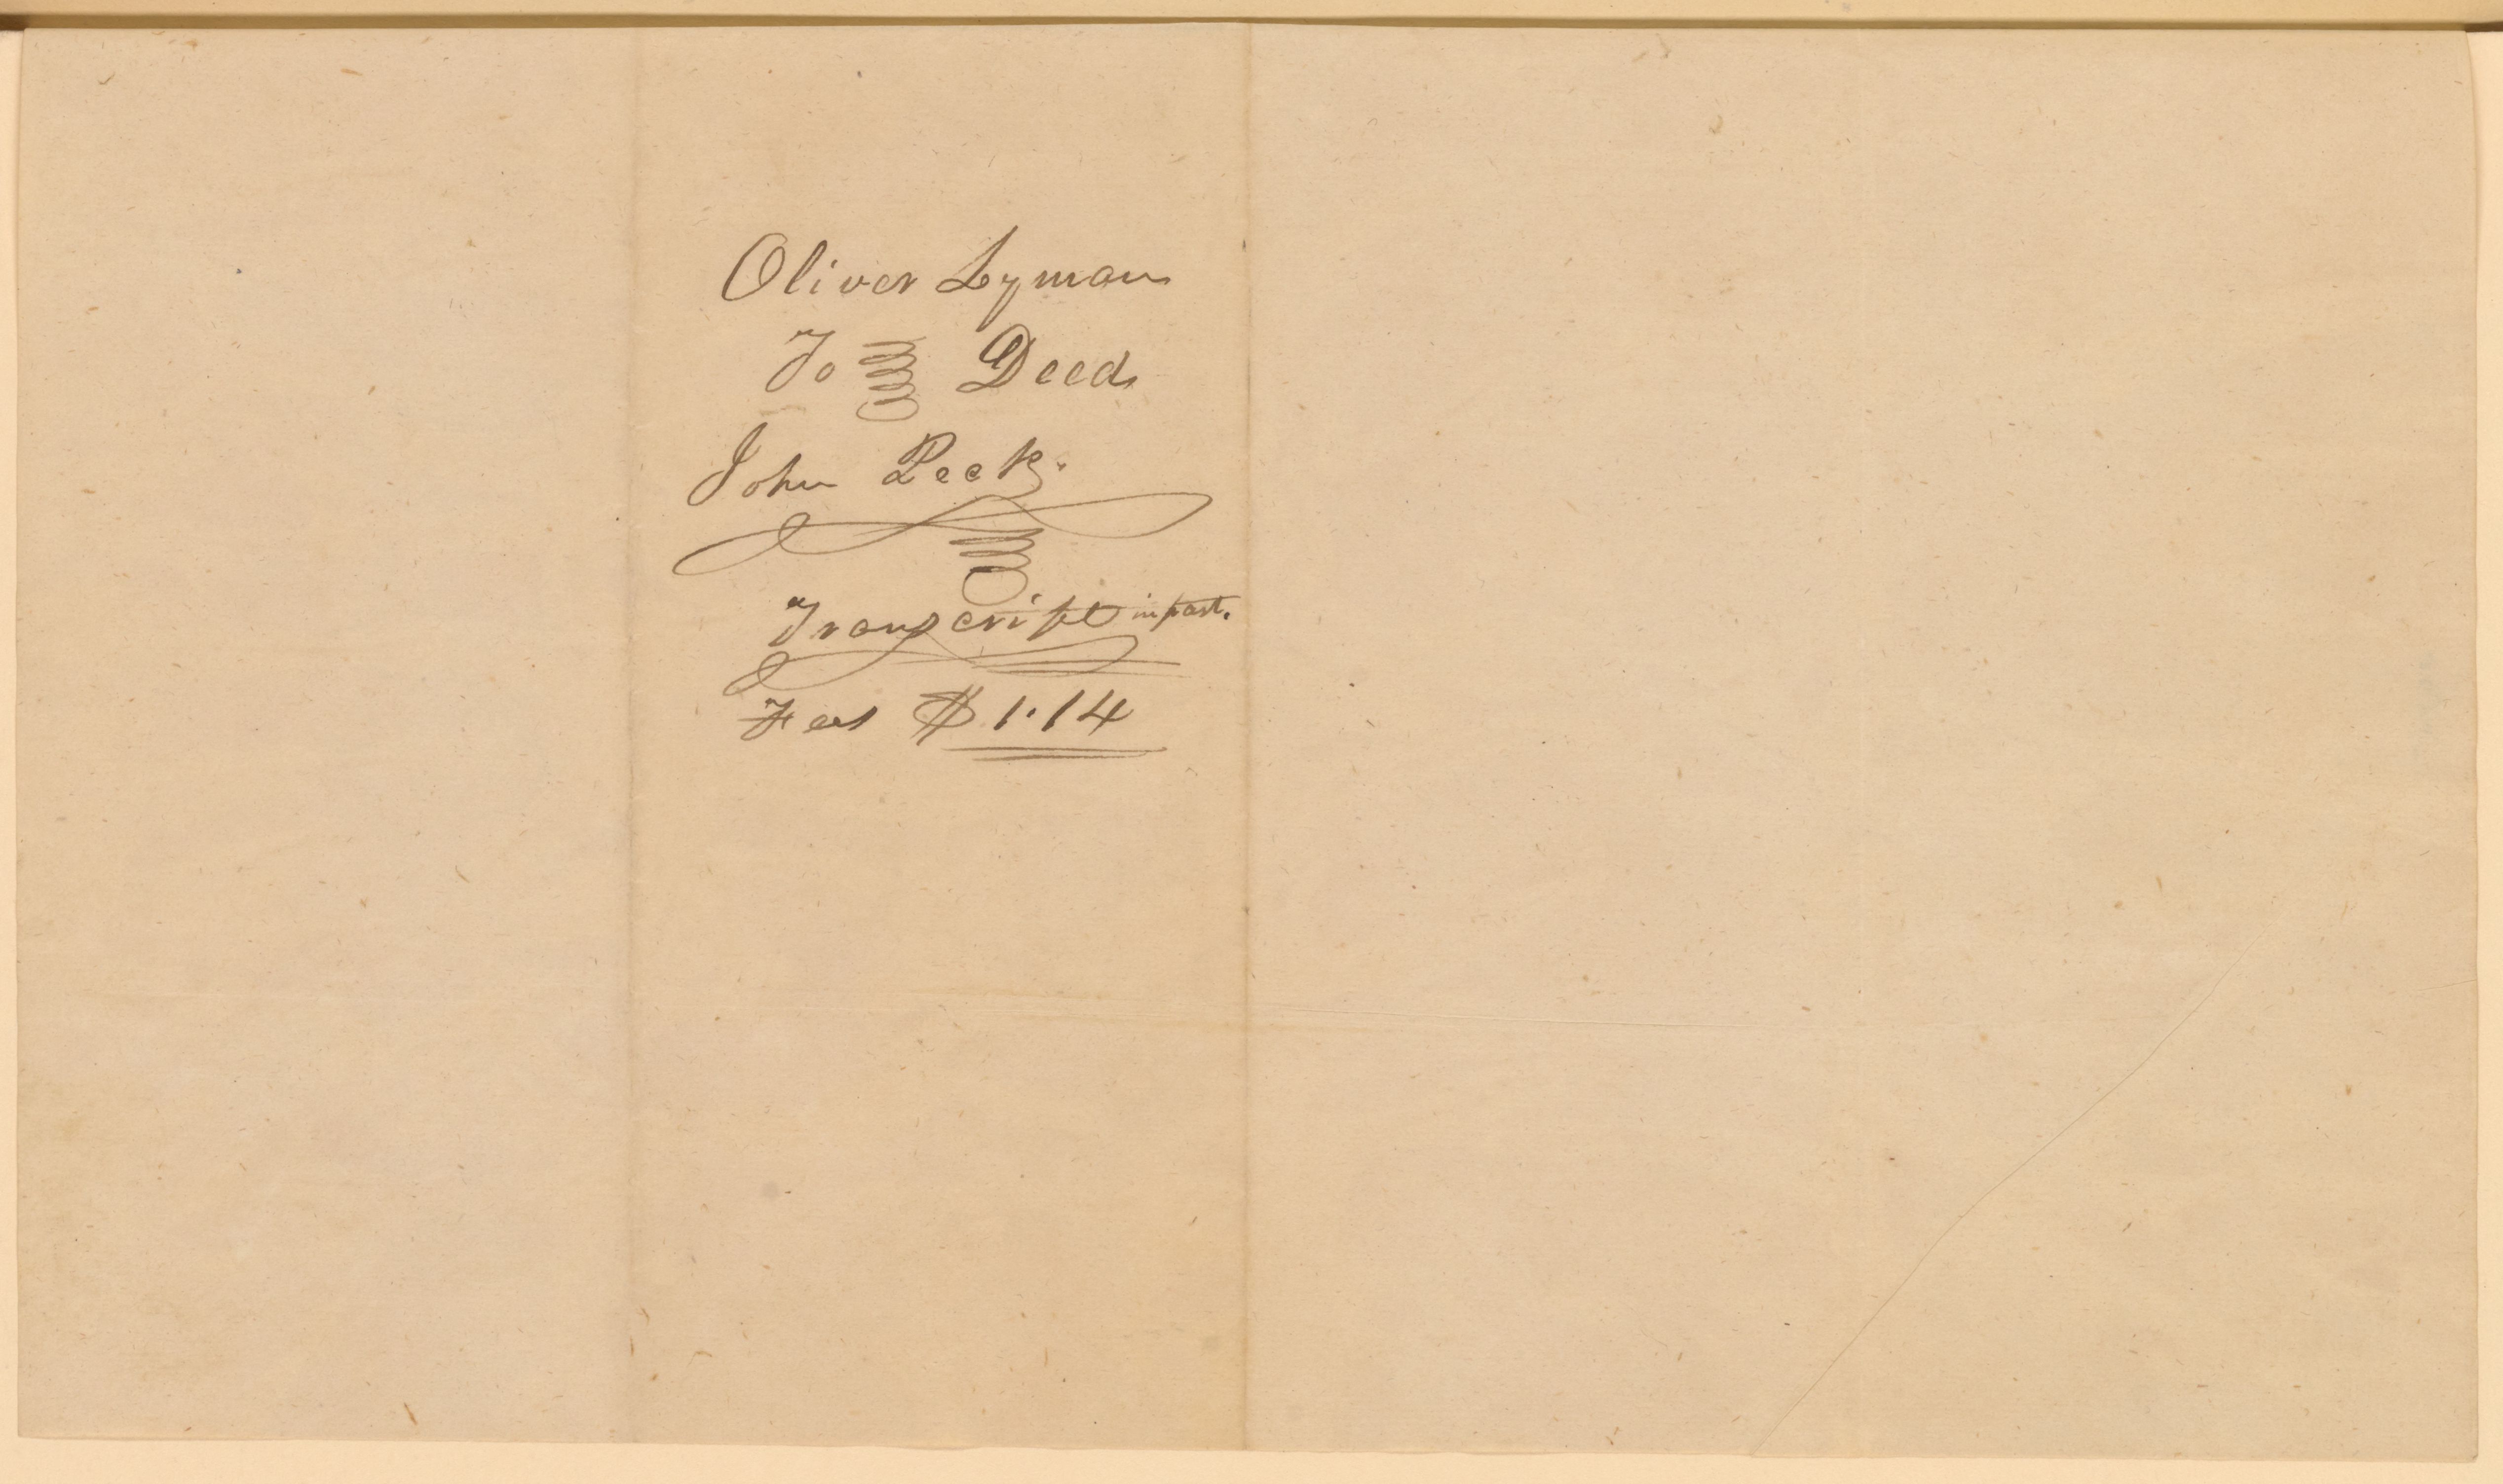 Oliver Lyman
To Deed
John Peck.
Transcript in part.
Fees $1.14